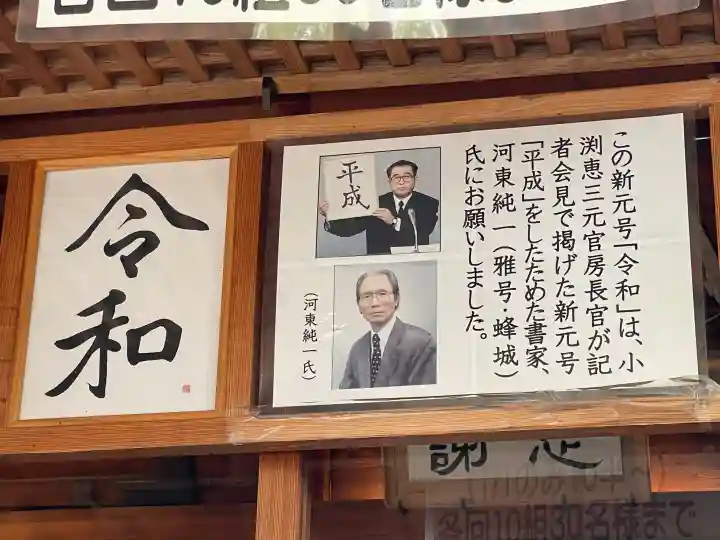 令和
平成
この新元号「令和」は、小
渕恵三元官房長官が記
者会見で掲げた新元号
「平成」をしたためた書家、
河東純一(雅号・蜂城)
氏にお願いしました。
(河東純一氏)
各回10組30名様まで